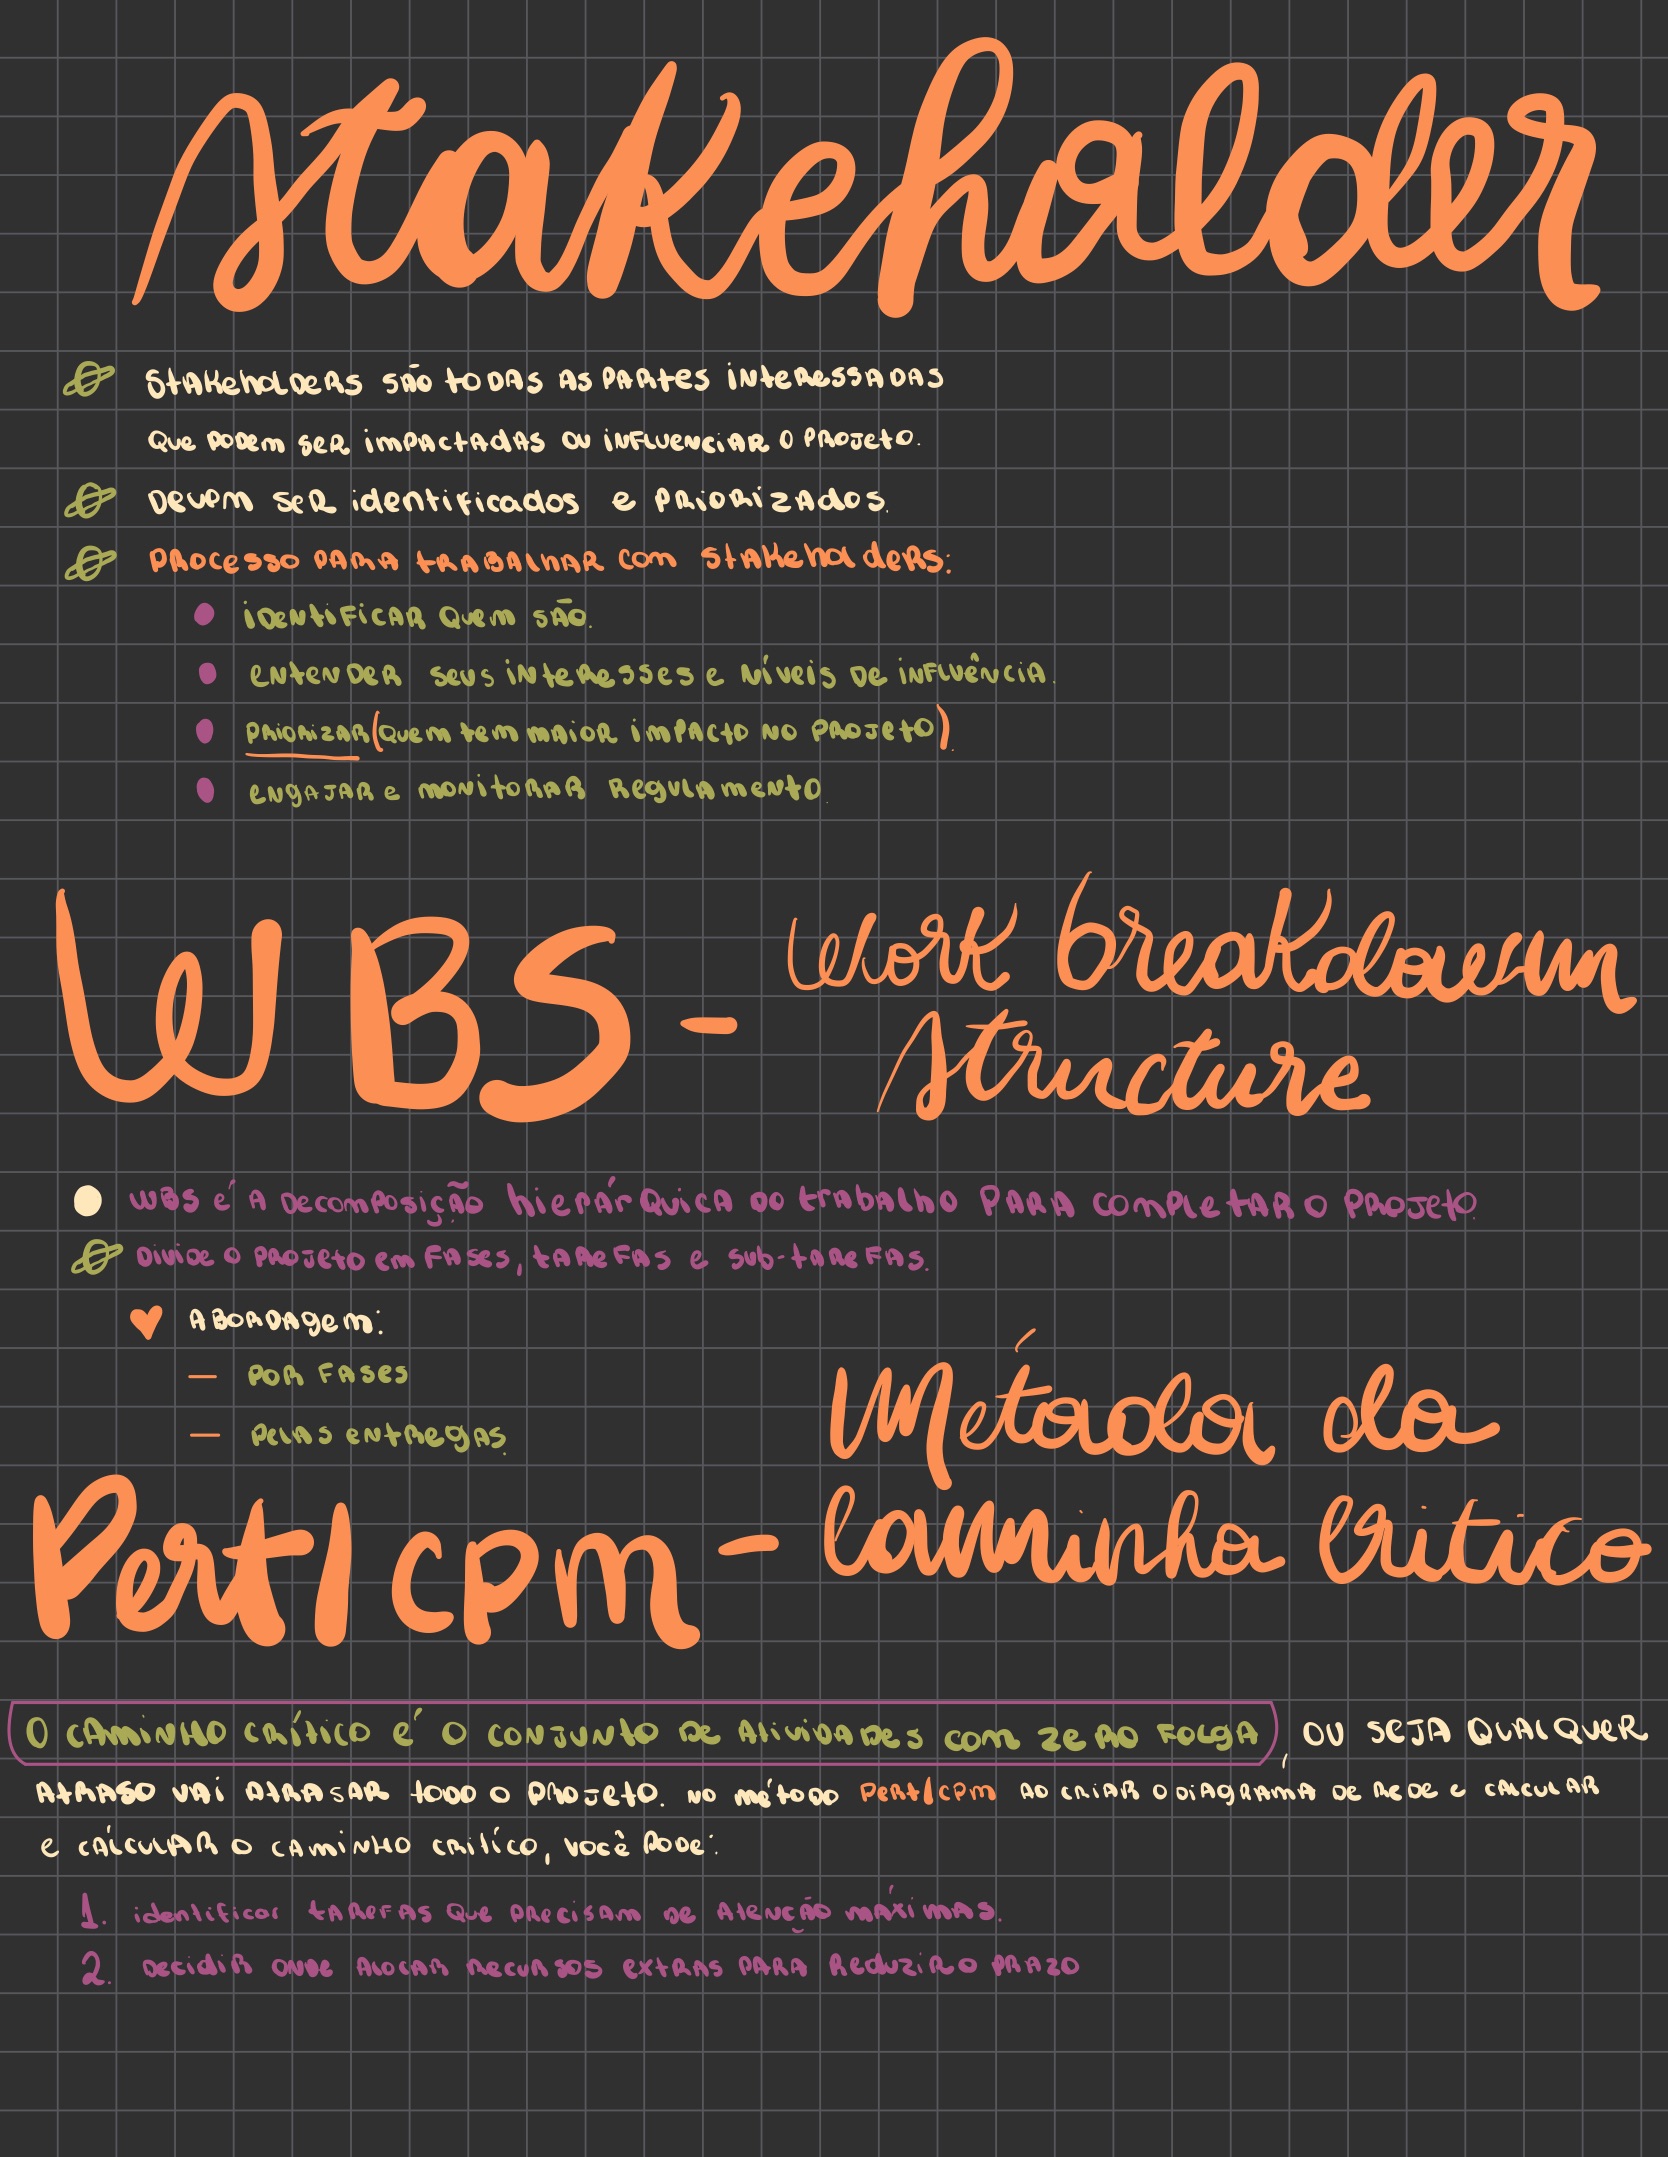 Stakeholder
Stakeholders são todas as partes interessadas
que podem ser impactadas ou influenciar o projeto.
Devem ser identificados e priorizados.
Processo para trabalhar com stakeholders:
identificar quem são.
entender seus interesses e níveis de influência.
priorizar (quem tem maior impacto no projeto).
engajar e monitorar regulamento.
WBS - Work breakdown
structure
WBS é a decomposição hiepárquica do trabalho para completar o projeto.
Divide o projeto em fases, tarefas e sub-tarefas.
Abordagem:
- Por fases
- Pelas entregas.
Pert/cpm - Método do
Caminho Critico
O caminho crítico é o conjunto de atividades com zero folga, ou seja qualquer
atraso vai atrasar todo o projeto. No método Pert/cpm ao criar o diagrama de rede e calcular
e cálcular o caminho crítico, você pode:
1. identificar tarefas que precisam de atenção máximas.
2. Decidir onde alocar recursos extras para reduzir o prazo